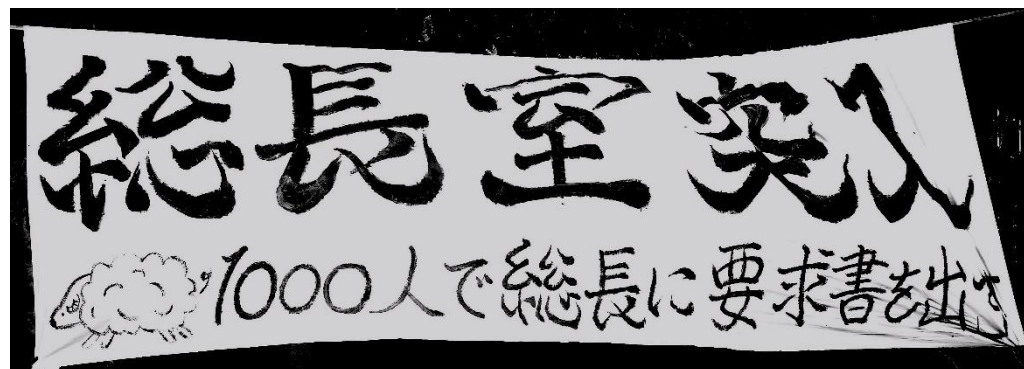 総長室突入
1000人で総長に要求書を出